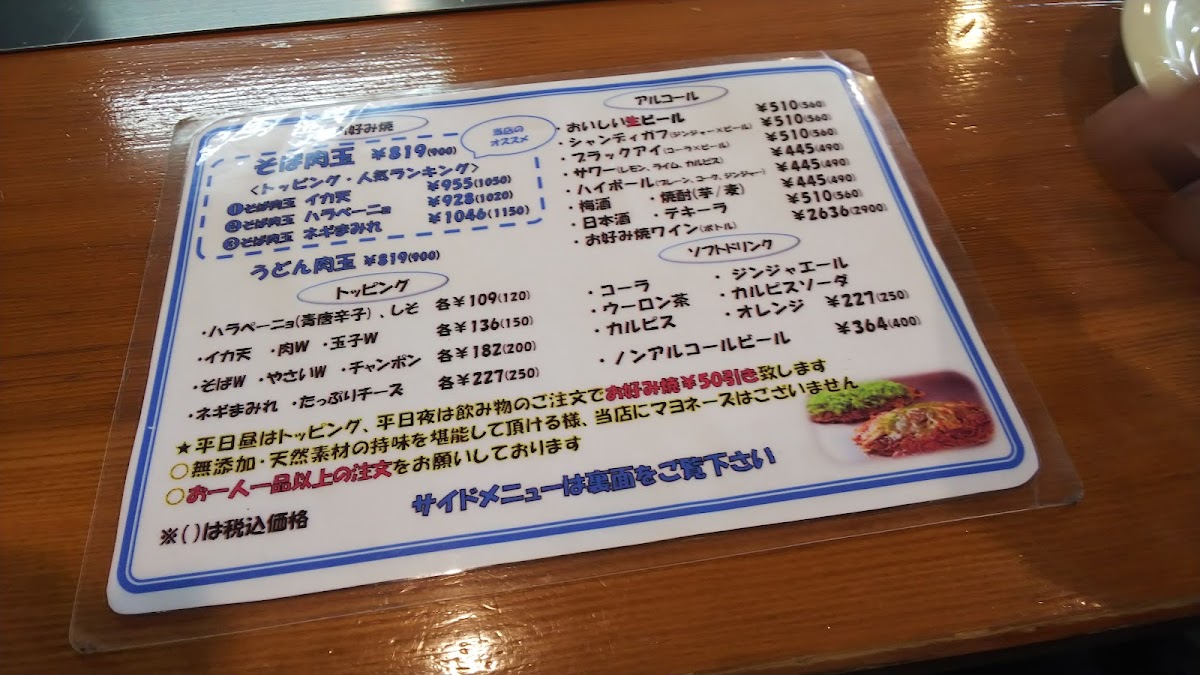 好み焼
当店の
オススメ
そば肉玉 ¥819(900)
<トッピング・人気ランキング>
①そば肉玉 イカ天 ¥955(1050)
②そば肉玉 ハラペーニョ ¥928(1020)
③そば肉玉 ネギまみれ ¥1046(1150)
うどん肉玉 ¥819(900)
トッピング
・ハラペーニョ(青唐辛子)、しそ 各¥109(120)
・イカ天 ・肉W ・玉子W 各¥136(150)
・そばW ・やさいW ・チャンポン 各¥182(200)
・ネギまみれ ・たっぷりチーズ 各¥227(250)
アルコール
・おいしい生ビール ¥510(560)
・シャンディガフ(ジンジャー×ビール) ¥510(560)
・ブラックアイ(コーラ×ビール) ¥510(560)
・サワー(レモン、ライム、カルピス) ¥445(490)
・ハイボール(プレーン、コーク、ジンジャー) ¥445(490)
・梅酒 ・焼酎(芋/麦) ¥445(490)
・日本酒 ・テキーラ ¥510(560)
・お好み焼ワイン(ボトル) ¥2636(2900)
ソフトドリンク
・コーラ ・ジンジャエール
・ウーロン茶 ・カルピスソーダ
・カルピス ・オレンジ ¥227(250)
・ノンアルコールビール ¥364(400)
★平日昼はトッピング、平日夜は飲み物のご注文でお好み焼¥50引き致します
○無添加・天然素材の持味を堪能して頂ける様、当店にマヨネーズはございません
○お一人一品以上の注文をお願いしております
サイドメニューは裏面をご覧下さい
※()は税込価格